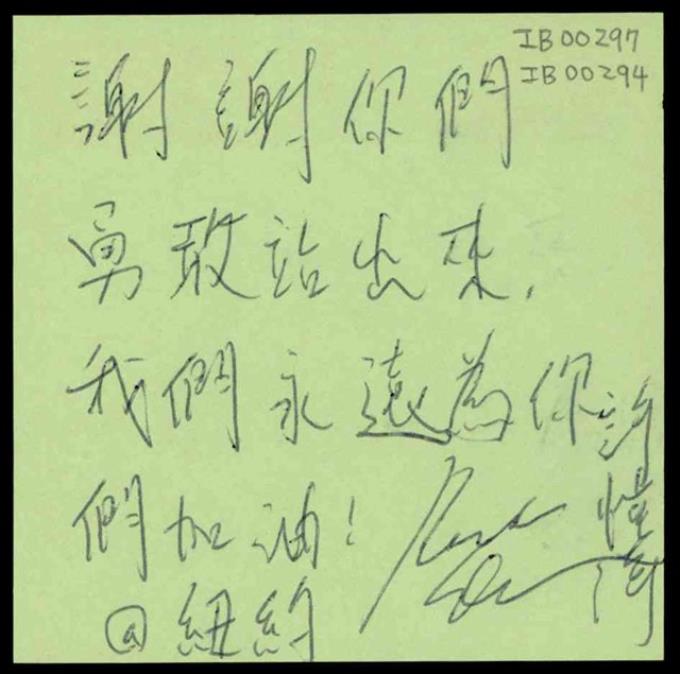 IB00297
IB00294
謝謝你們
勇敢站出來,
我們永遠為你
們加油!
@紐約
許愷